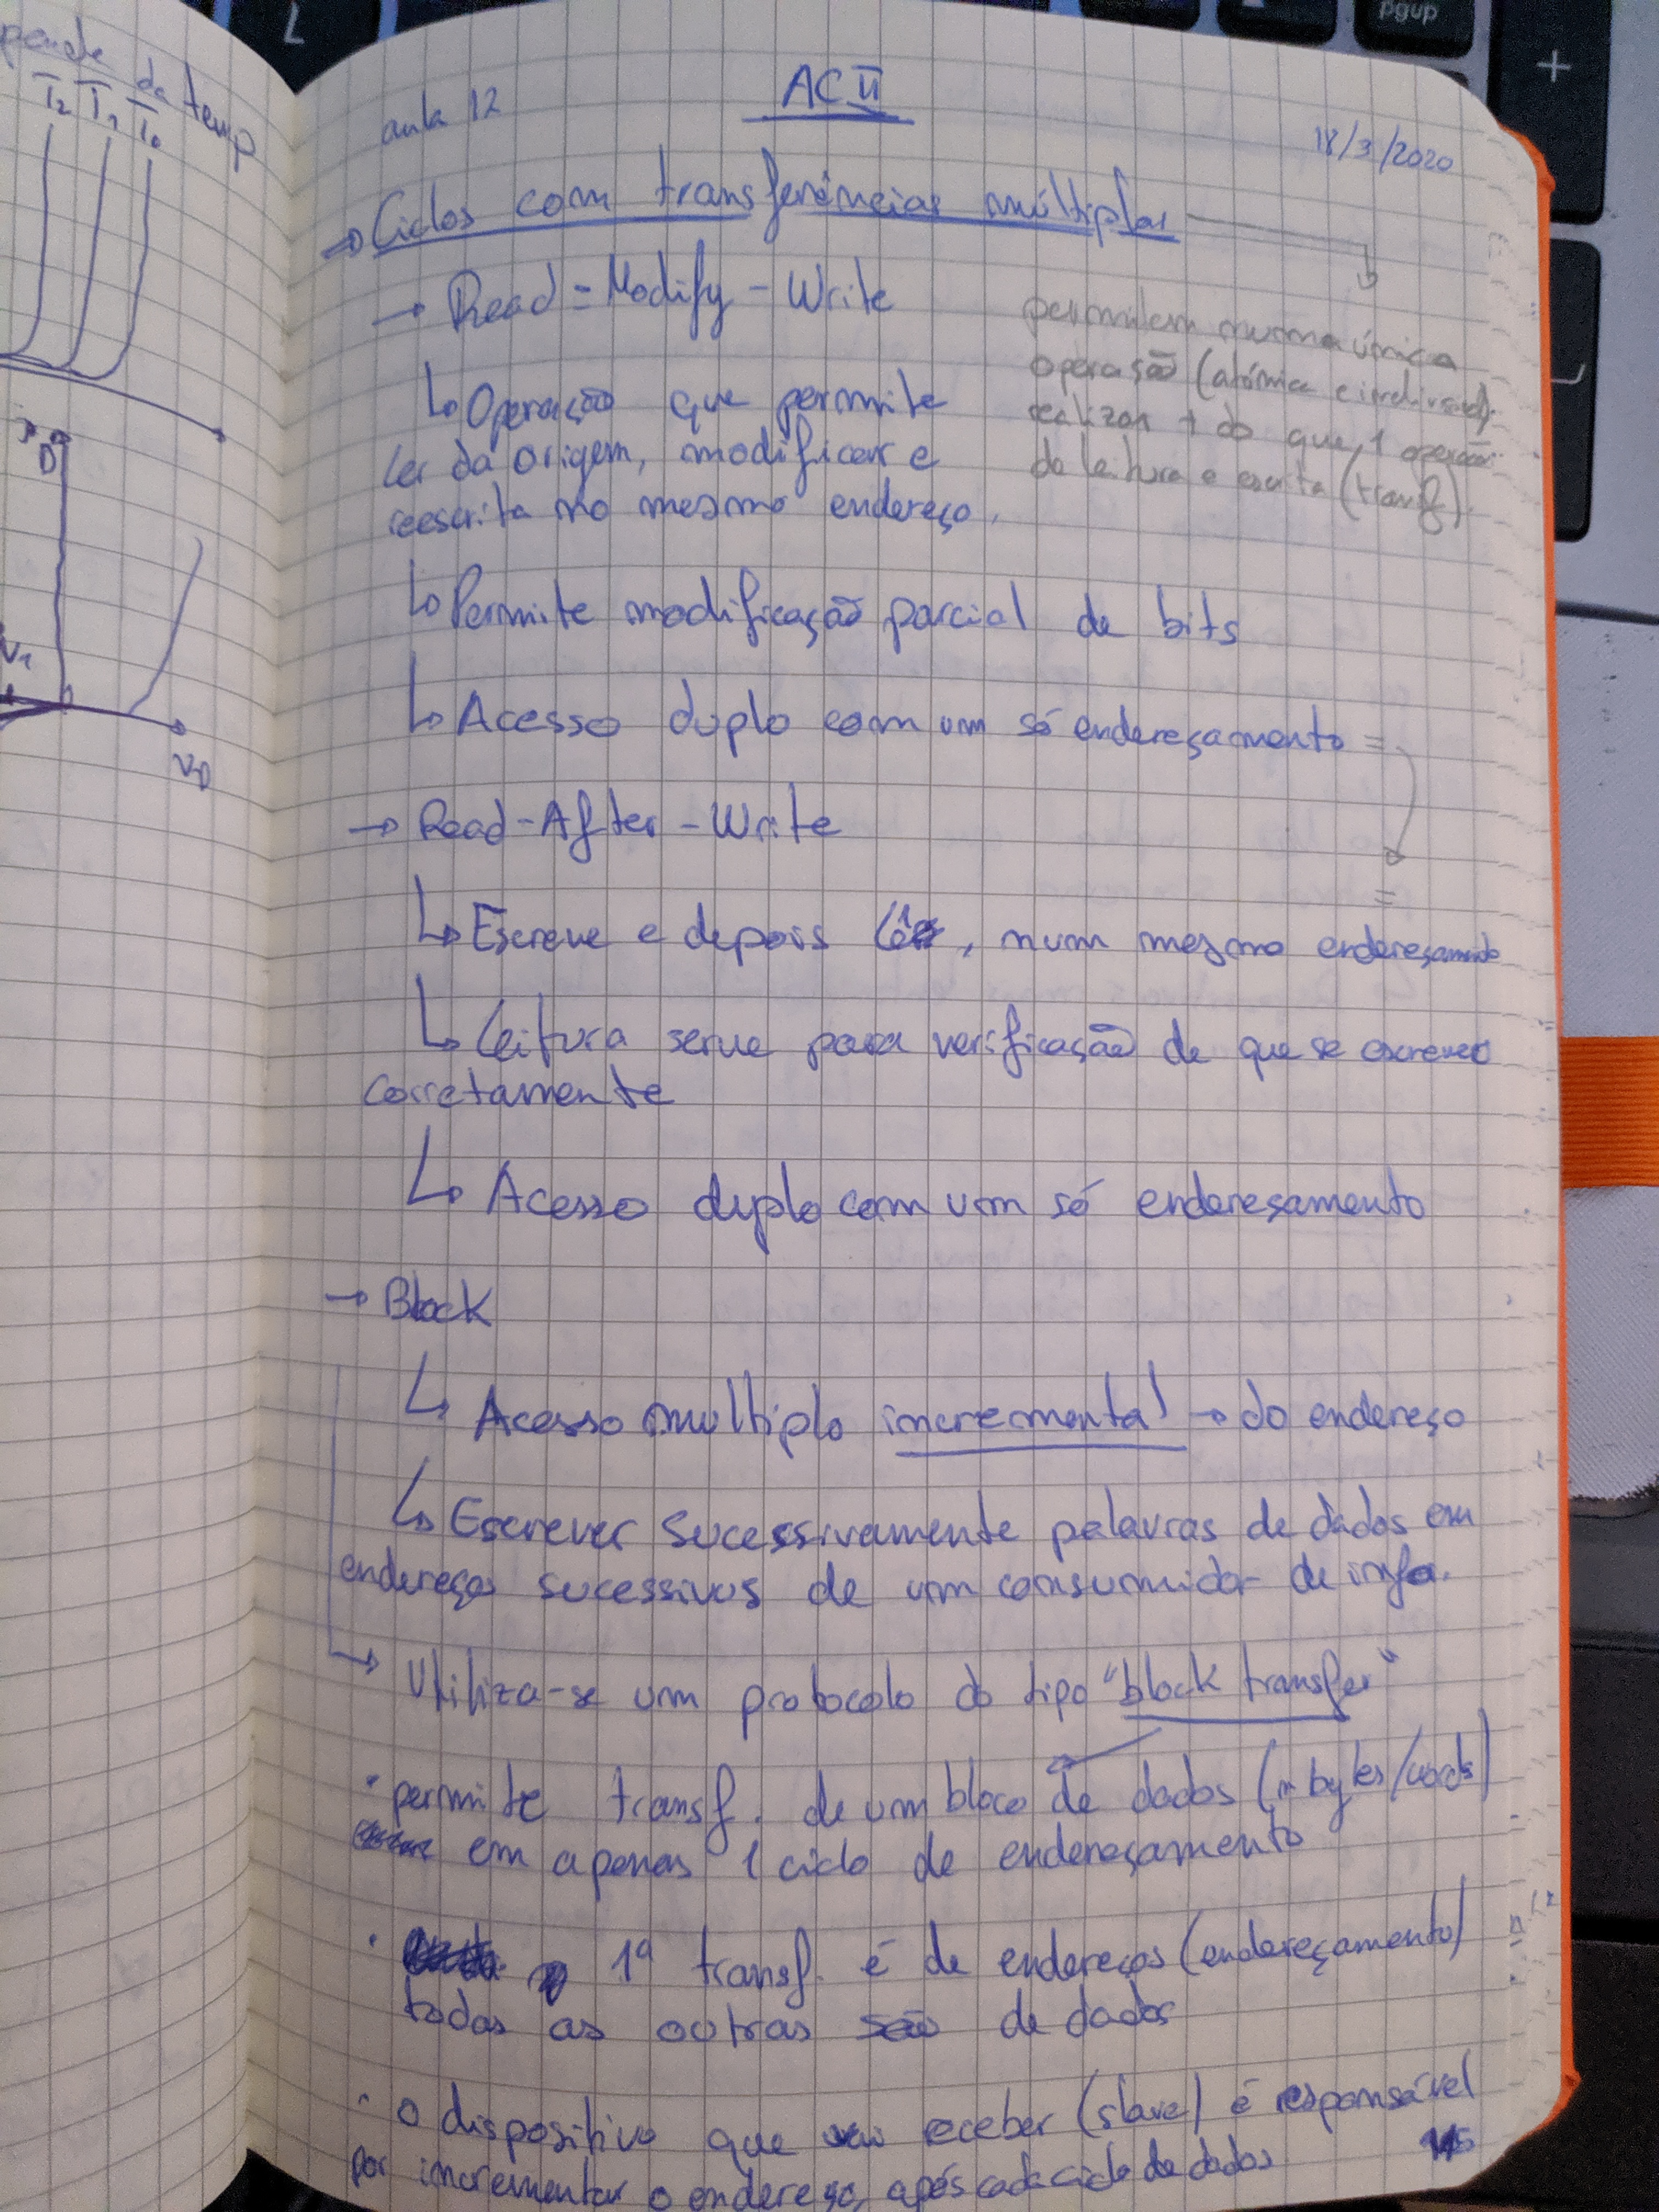 pende da temp
T2 T1 T0
D
V1
VD
aula 12
AC II
18/3/2020
→ Ciclos com transferências múltiplas
→ Read-Modify-Write
permitem numa única
operação (atómica e indivisível)
realizar + do que 1 operação
de leitura e escrita (transf).
↳ Operação que permite
ler da origem, modificar e
reescrita no mesmo endereço.
↳ Permite modificação parcial de bits
↳ Acesso duplo com um só endereçamento =
→ Read-After-Write
=
↳ Escreve e depois lê, num mesmo endereçamento
↳ Leitura serve para verificação de que se escreveu
corretamente
↳ Acesso duplo com um só endereçamento
→ Block
↳ Acesso múltiplo incremental → do endereço
↳ Escrever sucessivamente palavras de dados em
endereços sucessivos de um consumidor de info.
→ Utiliza-se um protocolo do tipo "block transfer"
• permite transf. de um bloco de dados (n bytes/words)
em apenas 1 ciclo de endereçamento
• 1ª transf. é de endereços (endereçamento)
todas as outras são de dados
• O dispositivo que receber (slave) é responsável
por incrementar o endereço, após cada ciclo de dados
pgup
+
L